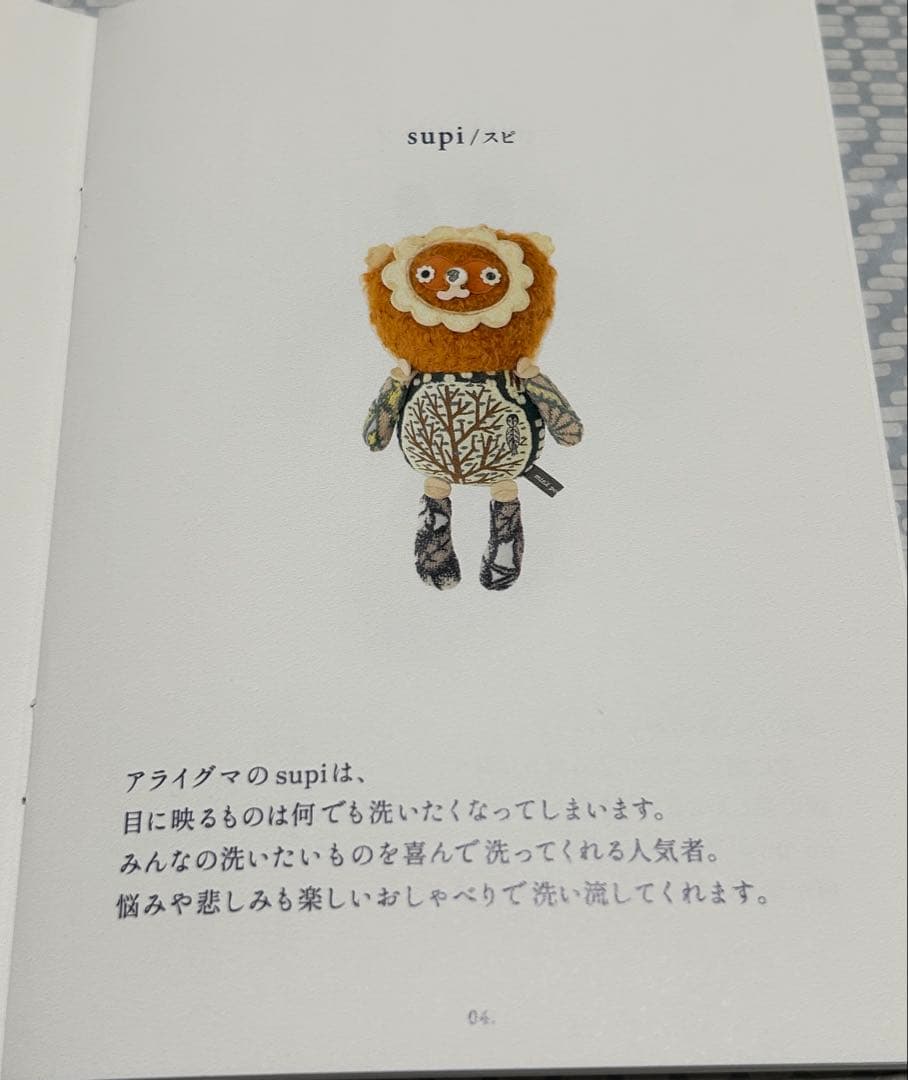 supi/スピ
アライグマのsupiは、
目に映るものは何でも洗いたくなってしまいます。
みんなの洗いたいものを喜んで洗ってくれる人気者。
悩みや悲しみも楽しいおしゃべりで洗い流してくれます。
04.